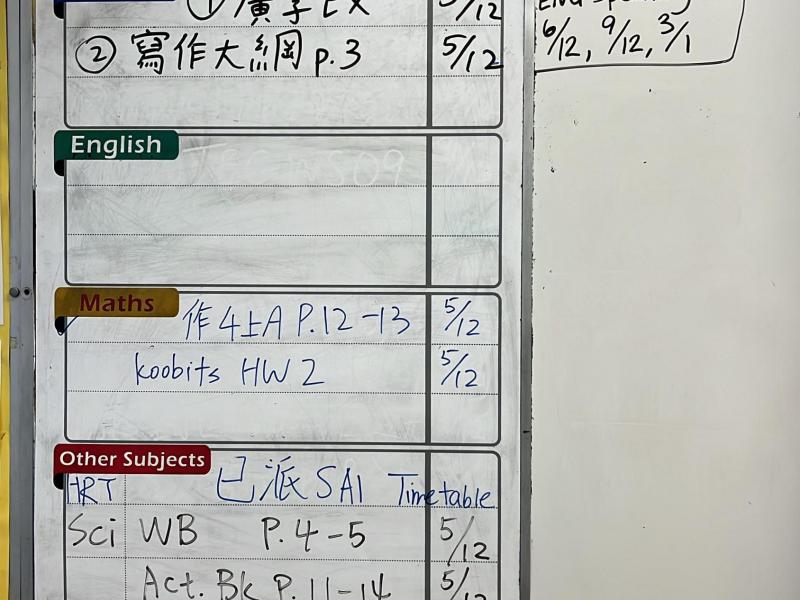 ② 寫作大綱 p.3 5/12
6/12, 9/12, 3/1
English
Maths
作4上A P.12-13 5/12
koobits HW 2 5/12
Other Subjects
HRT 已派 SA1 Timetable
Sci WB P.4-5 5/12
Act. Bk P.11-14 5/12